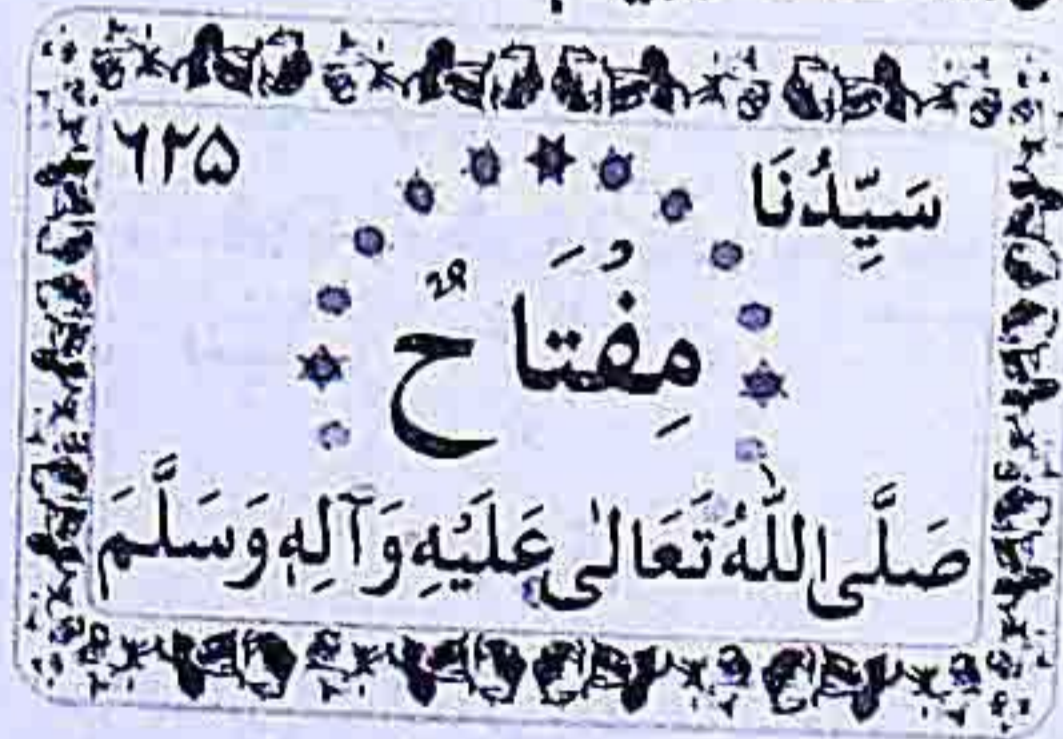 سَيِّدُنَا ۶۲۵
مِفْتَاحٌ
صَلَّى اللّٰهُ تَعَالٰى عَلَيْهِ وَآلِهٖ وَسَلَّمَ